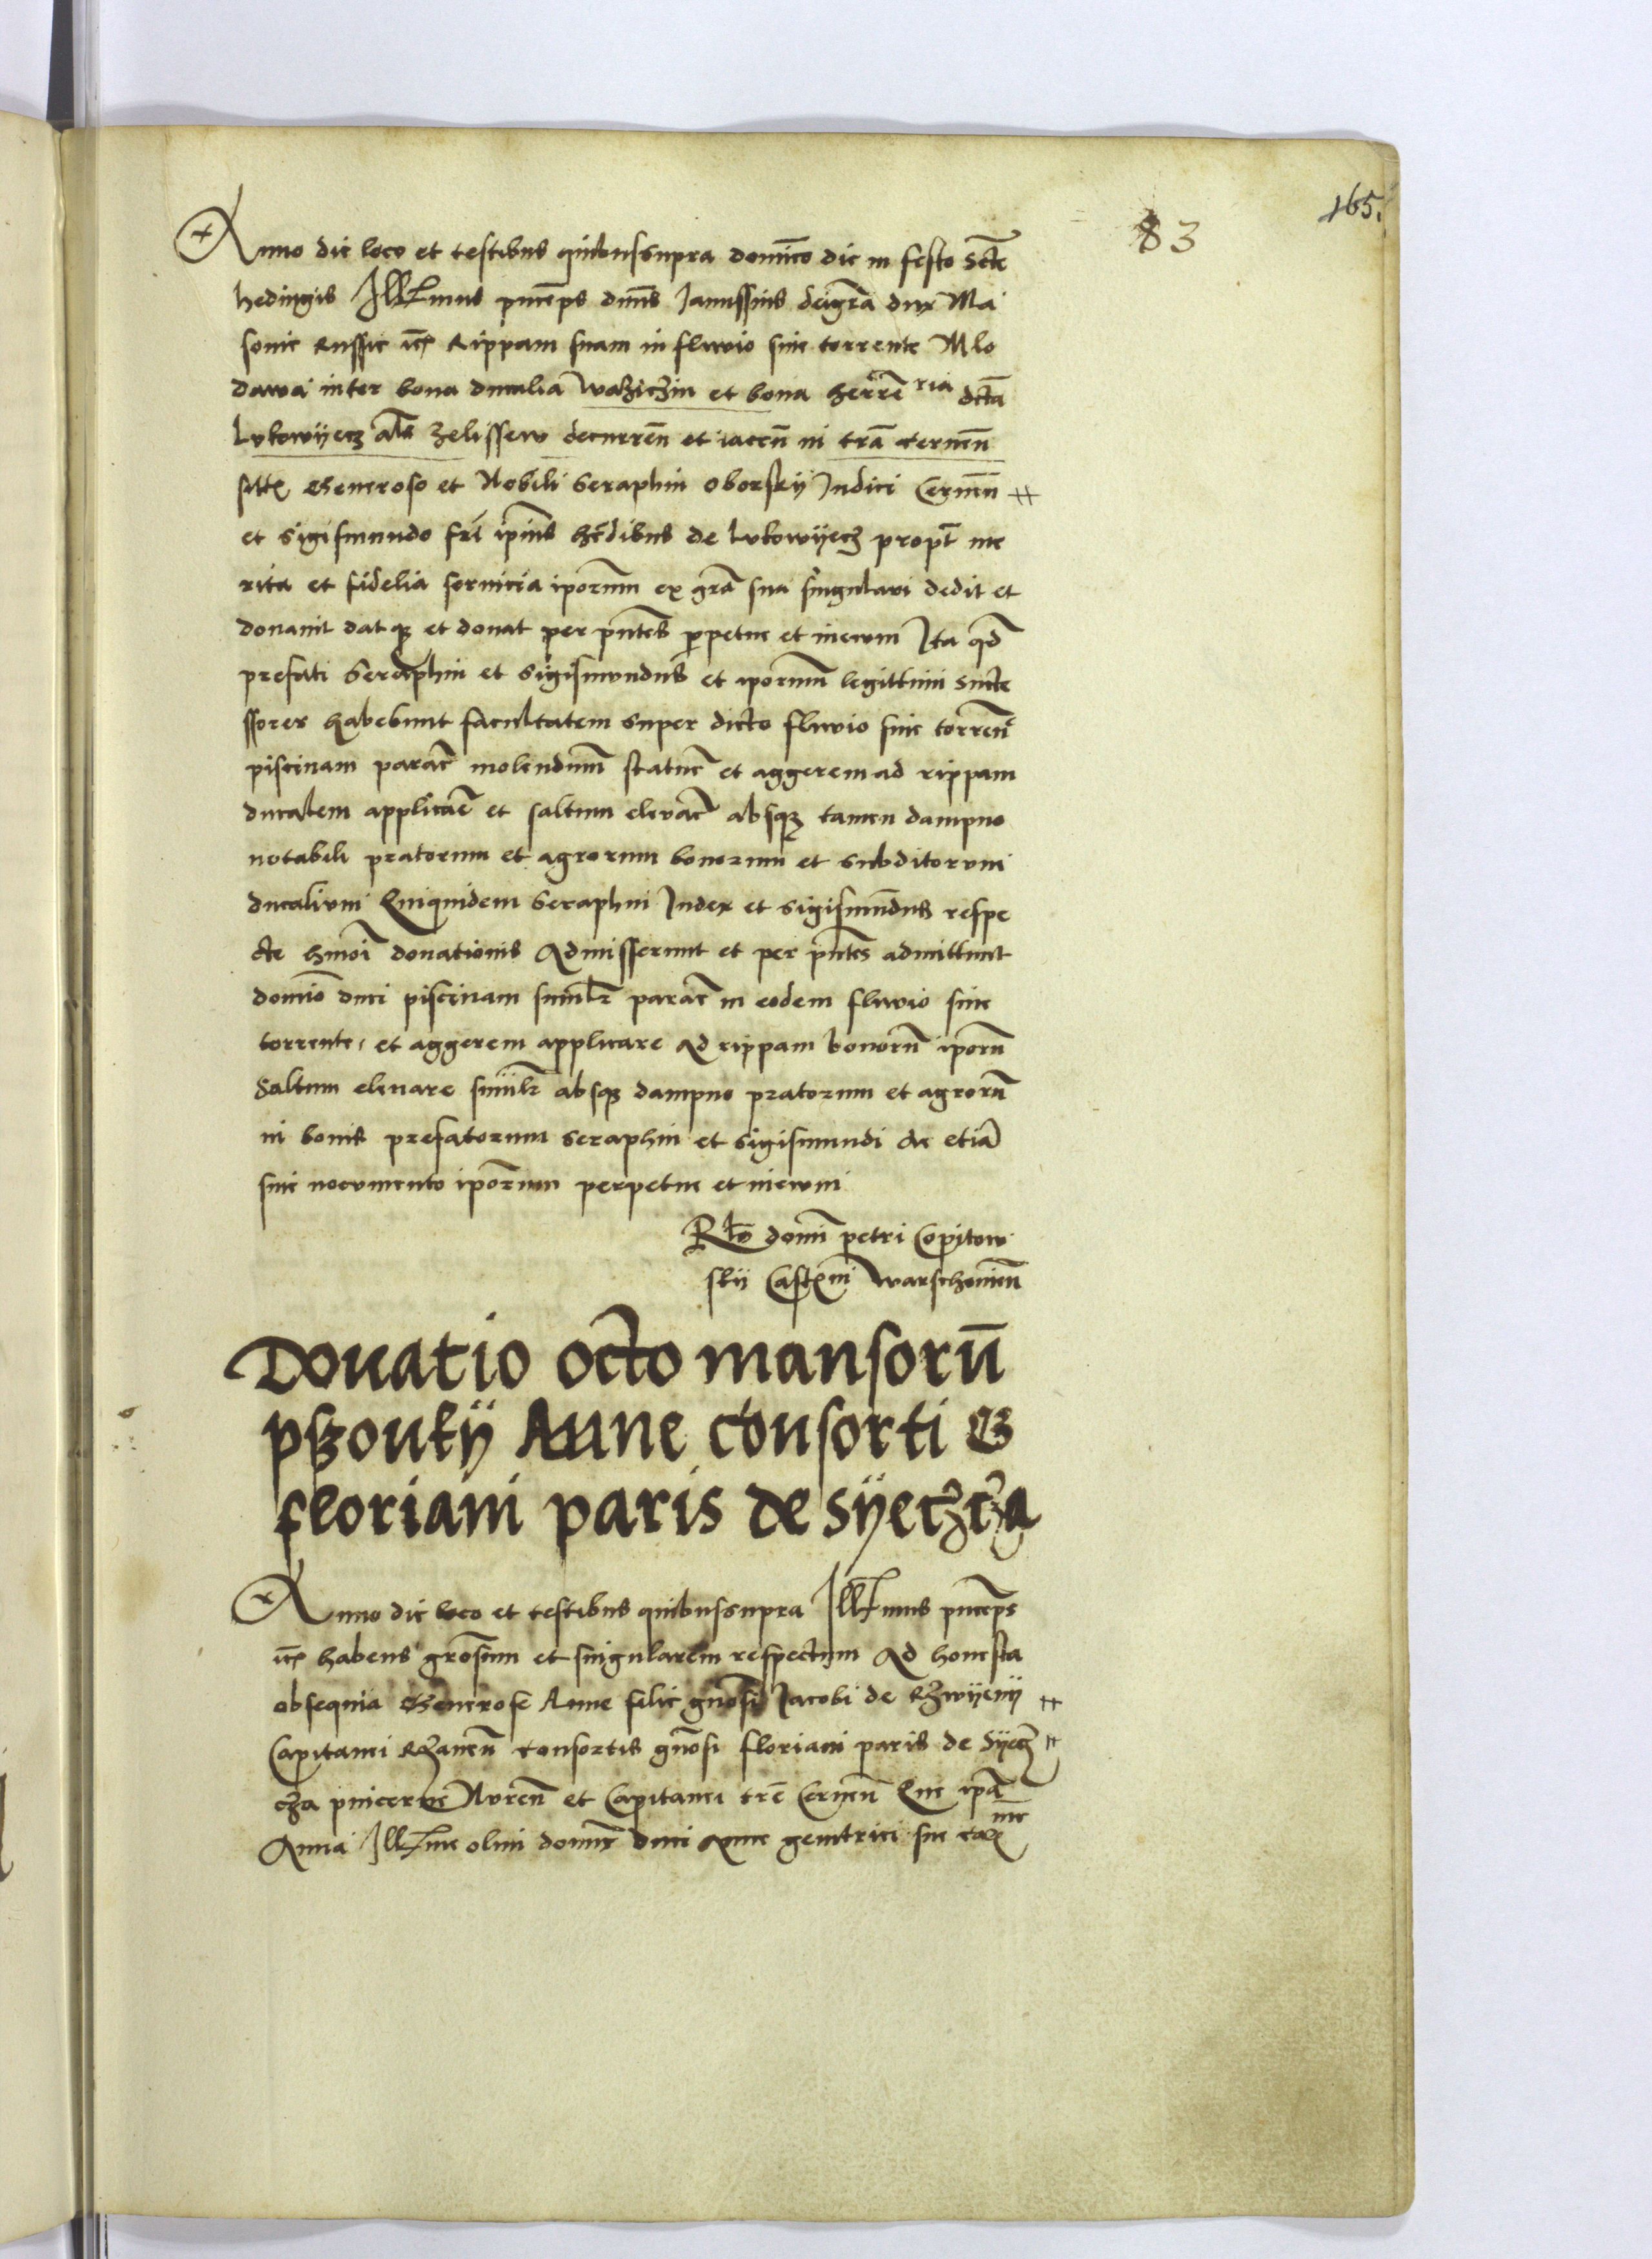 165.
83
Anno die loco et testibus quibussupra dominico die in festo Sctē
hedingis Illrmus princeps dnus Janussius dei gra dux Ma
sovie Russie etc Rippam suam in fluvio sive torrente Mlo
dawa inter bona ducalia Wazichin et bona herrē ria dcta
Lukowyecz als zelissew decurren et iacen in tra cernen
sitte Generoso et Nobili Seraphin oborsky Judici Cernen
et Sigismundo fri ipius hedibus de Lukowyecz propt me
rita et fidelia servicia iporum ex gra sua singulari dedit et
donavit dat q3 et donat per pntes perpetue et inewm Ita qd
prefati Seraphin et Sigismundus et iporum legittimi succe
ssores habebunt facultatem super dicto fluvio sive torren
piscinam parare molendinum statuē et aggerem ad rippam
ducalem applicaē et saltum elevare absq3 tamen dampno
notabili pratorum et agrorum bonorum et subditorum
ducalium Quiquidem Seraphin Judex et Sigismundus respe
ctu hmoi donationis Admisserunt et per pntes admittunt
domino duci piscinam similr parare in eodem fluvio sive
torrente, et aggerem applicare Ad rippam bonoru iporu
Saltum elevare similr absq3 dampno pratorum et agroru
in bonis prefatorum Seraphin et Sigismundi Ac etia
sine nocumento iporum perpetue et inewm
Rlo domi petri Copitow
sky Castni Warschovien
Donatio octo mansoru
pszonky Anne consorti G
floriani paris de Syeczcza
Anno die loco et testibus quibussupra Illrmus princeps
etc habens grosum et singularem respectum Ad honesta
obsequia Generose Anne filie gnosi Jacobi de Rzwyeny
Capitanei Rozanen consortis gnosi floriani paris de Syecz
cza pincerne Nuren et Capitanei tre Cernen Que ipa
Anna Illrme olim domine duci Anne genitrici sue cares me